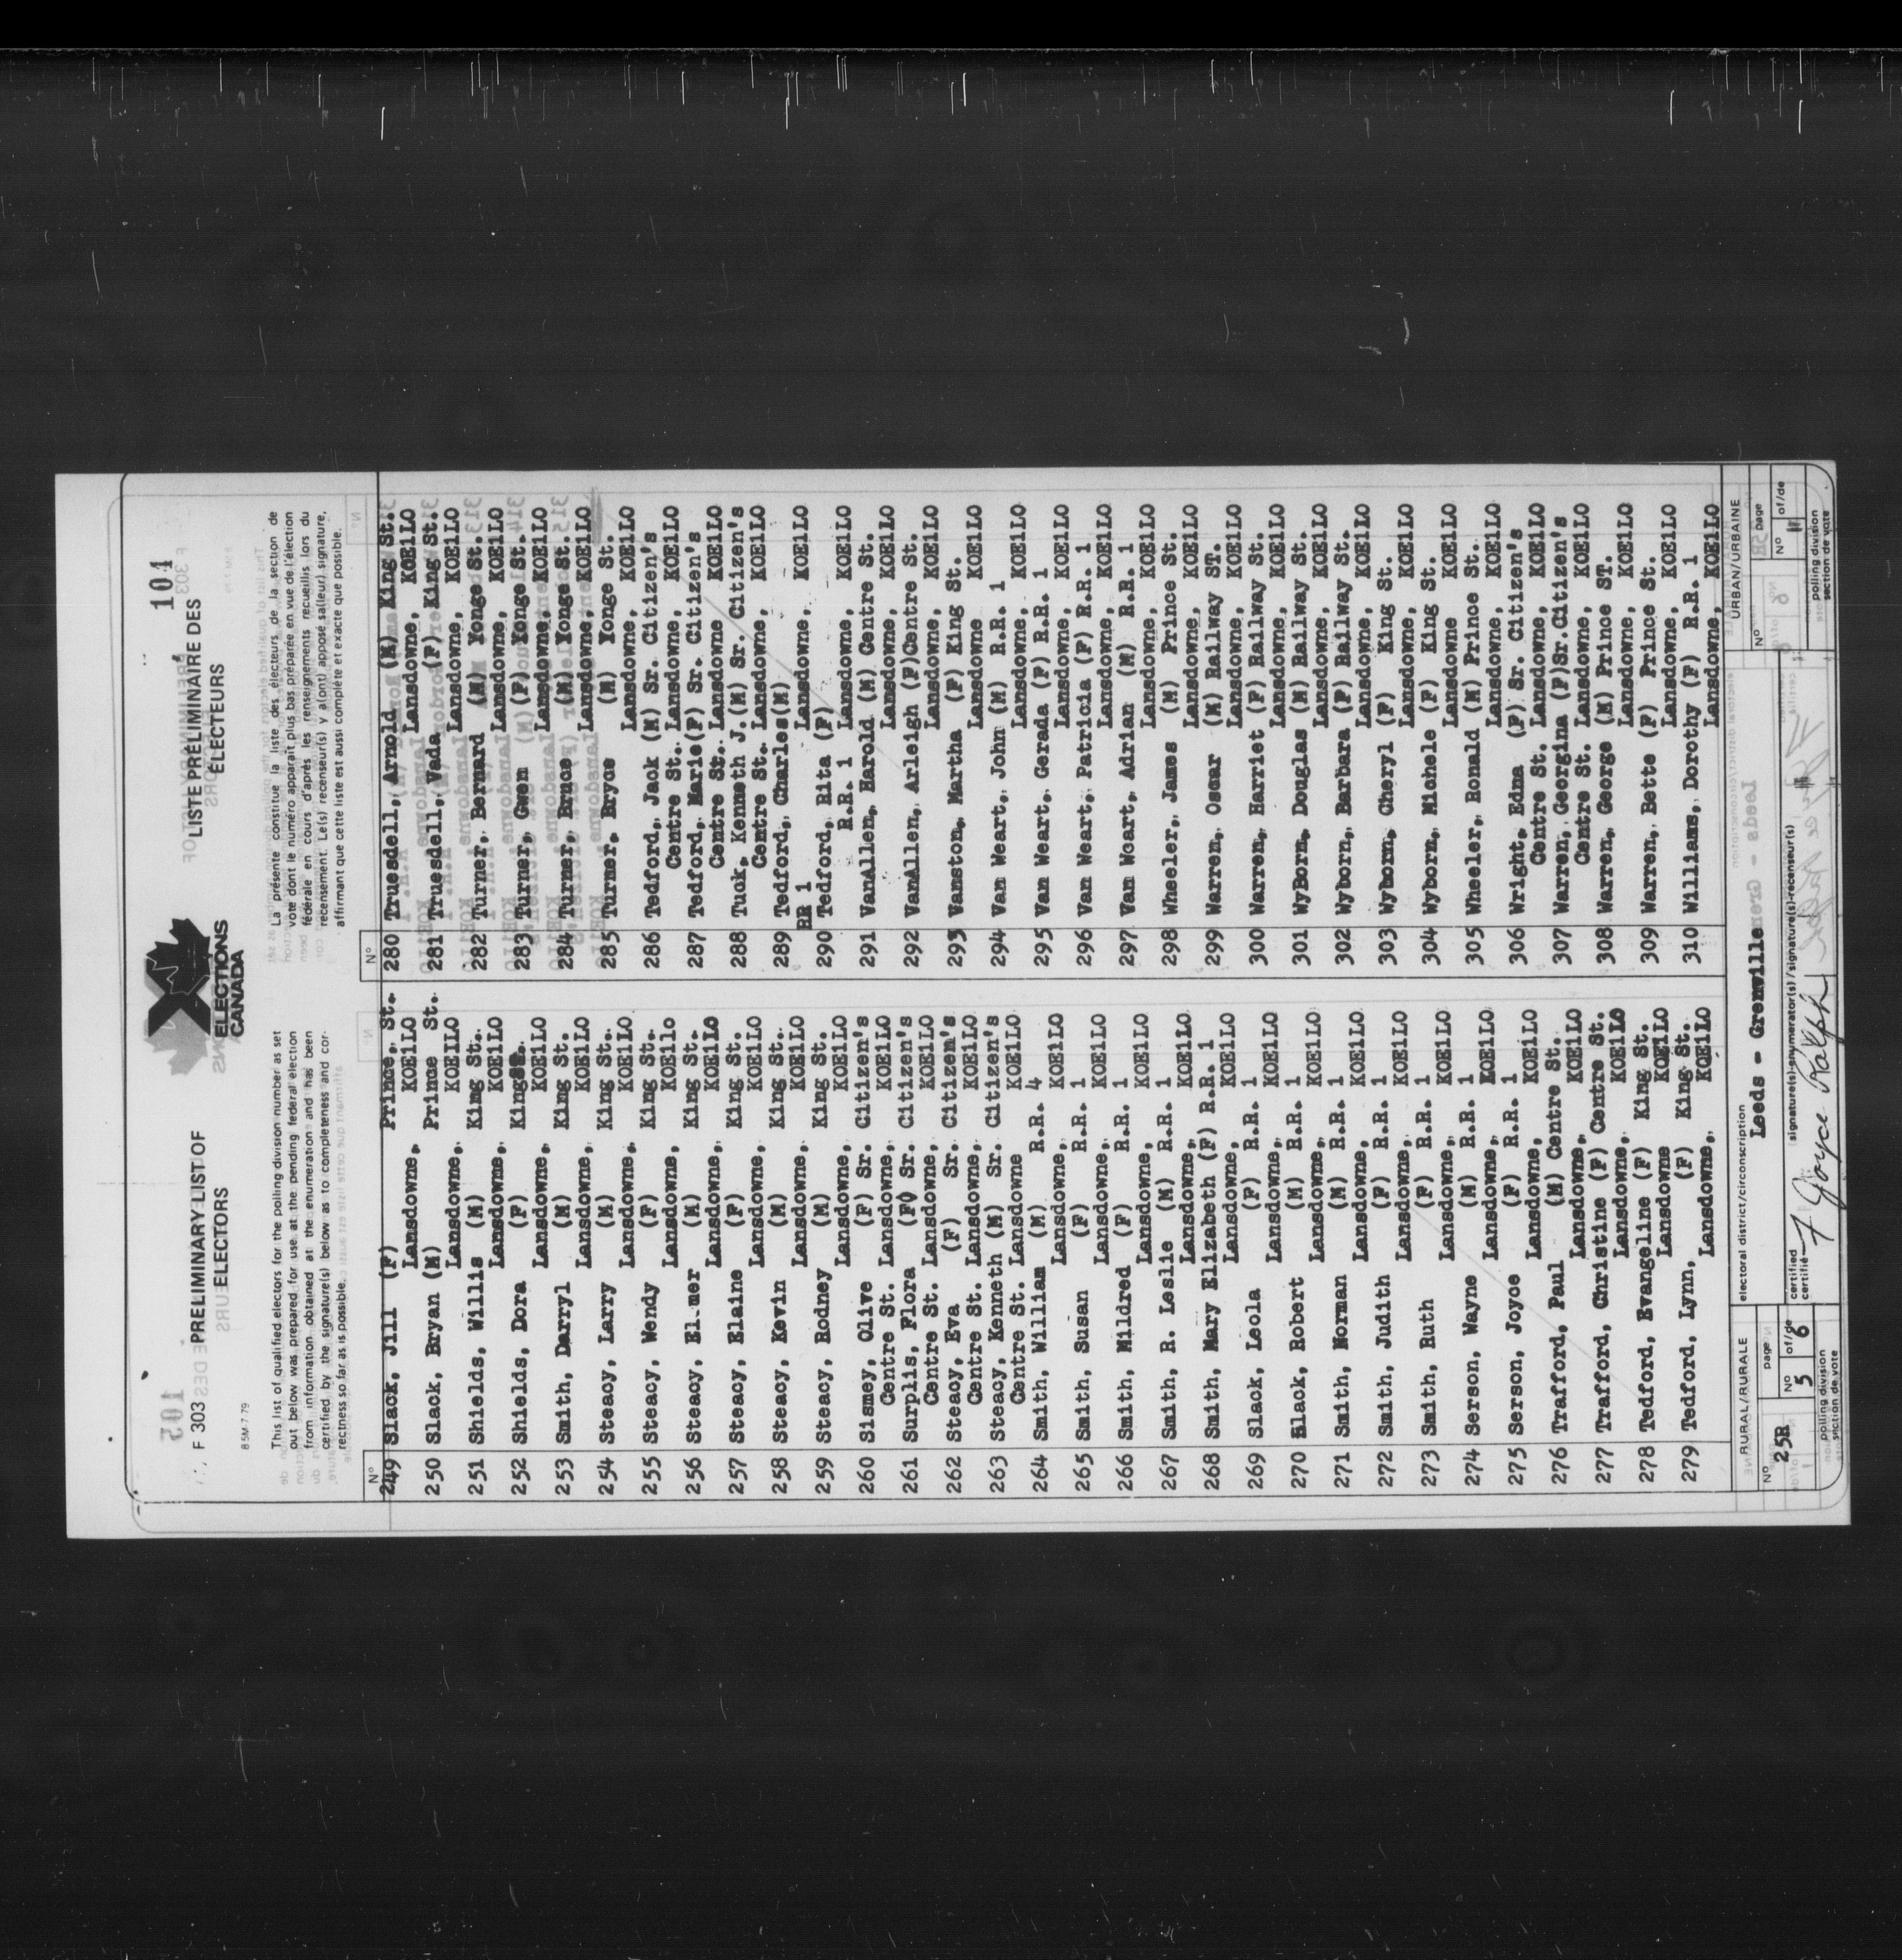 104
F 303 PRELIMINARY LIST OF
ELECTORS
85M-7-79
ELECTIONS
CANADA
LISTE PRÉLIMINAIRE DES
ÉLECTEURS
This list of qualified electors for the polling division number as set
out below was prepared for use at the pending federal election
from information obtained at the enumeration and has been
certified by the signature(s) below as to completeness and cor-
rectness so far as is possible.
La présente constitue la liste des électeurs de la section de
vote dont le numéro apparaît plus bas préparée en vue de l'élection
fédérale en cours d'après les renseignements recueillis lors du
recensement. Le(s) recenseur(s) y a(ont) apposé sa(leur) signature,
affirmant que cette liste est aussi complète et exacte que possible.
No
249 Slack, Jill (F) Prince, St.
Lansdowne, KOE1LO
250 Slack, Bryan (M) Prince St.
Lansdowne, KOE1LO
251 Shields, Willis (M) King St.
Lansdowne, KOE1LO
252 Shields, Dora (F) King St.
Lansdowne, KOE1LO
253 Smith, Darryl (M) King St.
Lansdowne, KOE1LO
254 Steacy, Larry (M) King St.
Lansdowne, KOE1LO
255 Steacy, Wendy (F) King St.
Lansdowne, KOE1lo
256 Steacy, Elmer (M) King St.
Lansdowne, KOE1LO
257 Steacy, Elaine (F) King St.
Lansdowne, KOE1LO
258 Steacy, Kevin (M) King St.
Lansdowne, KOE1LO
259 Steacy, Rodney (M) King St.
Lansdowne, KOE1LO
260 Sismey, Olive (F) Sr. Citizen's
Centre St. Lansdowne, KOE1LO
261 Surplis, Flora (F) Sr. Citizen's
Centre St. Lansdowne, KOE1LO
262 Steacy, Eva (F) Sr. Citizem's
Centre St. Lansdowne, KOE1LO
263 Steacy, Kenneth (M) Sr. Citizen's
Centre St. Lansdowne KOE1LO
264 Smith, William (M) R.R. 4
Lansdowne, KOE1LO
265 Smith, Susan (F) R.R. 1
Lansdowne, KOE1LO
266 Smith, Mildred (F) R.R. 1
Lansdowne, KOE1LO
267 Smith, R. Leslie (M) R.R. 1
Lansdowne, KOE1LO
268 Smith, Mary Elizabeth (F) R.R. 1
Lansdowne, KOE1LO
269 Slack, Leola (F) R.R. 1
Lansdowne, KOE1LO
270 Slack, Robert (M) R.R. 1
Lansdowne, KOE1LO
271 Smith, Norman (M) R.R. 1
Lansdowne, KOE1LO
272 Smith, Judith (F) R.R. 1
Lansdowne, KOE1LO
273 Smith, Ruth (F) R.R. 1
Lansdowne, KOE1LO
274 Serson, Wayne (M) R.R. 1
Lansdowne, KOE1LO
275 Serson, Joyce (F) R.R. 1
Lansdowne, KOE1LO
276 Trafford, Paul (M) Centre St.
Lansdowne, KOE1LO
277 Trafford, Christine (F) Centre St.
Lansdowne, KOE1LO
278 Tedford, Evangeline (F) King St.
Lansdowne KOE1LO
279 Tedford, Lynn, (F) King St.
Lansdowne, KOE1LO
No
280 Truesdell, Arnold (M) King St.
Lansdowne, KOE1LO
281 Truesdell, Vada (F) King St.
Lansdowne, KOE1LO
282 Turner, Bernard (M) Yonge St.
Lansdowne, KOE1LO
283 Turner, Gwen (F) Yonge St.
Lansdowne, KOE1LO
284 Turner, Bruce (M) Yonge St.
Lansdowne, KOE1LO
285 Turner, Bryce (M) Yonge St.
Lansdowne, KOE1LO
286 Tedford, Jack (M) Sr. Citizen's
Centre St. Lansdowne, KOE1LO
287 Tedford, Marie(F) Sr. Citizen's
Centre St. Lansdowne, KOE1LO
288 Tuck, Kenneth J.(M) Sr. Citizen's
Centre St. Lansdowne, KOE1LO
289 Tedford, Charles(M)
RR 1 Lansdowne, KOE1LO
290 Tedford, Rita (F)
R.R. 1 Lansdowne, KOE1LO
291 VanAllen, Harold (M) Centre St.
Lansdowne, KOE1LO
292 VanAllen, Arleigh (F)Centre St.
Lansdowne, KOE1LO
293 Vanston, Martha (F) King St.
Lansdowne, KOE1LO
294 Van Weart, John (M) R.R. 1
Lansdowne, KOE1LO
295 Van Weart, Gerada (F) R.R. 1
Lansdowne, KOE1LO
296 Van Weart, Patricia (F) R.R. 1
Lansdowne, KOE1LO
297 Van Weart, Adrian (M) R.R. 1
Lansdowne, KOE1LO
298 Wheeler, James (M) Prince St.
Lansdowne, KOE1LO
299 Warren, Oscar (M) Railway ST.
Lansdowne, KOE1LO
300 Warren, Harriet (F) Railway St.
Lansdowne, KOE1LO
301 WyBorn, Douglas (M) Railway St.
Lansdowne, KOE1LO
302 Wyborn, Barbara (F) Railway St.
Lansdowne, KOE1LO
303 Wyborn, Cheryl (F) King St.
Lansdowne, KOE1LO
304 Wyborn, Michele (F) King St.
Lansdowne KOE1LO
305 Wheeler, Ronald (M) Prince St.
Lansdowne, KOE1LO
306 Wright, Edna (F) Sr. Citizen's
Centre St. Lansdowne, KOE1LO
307 Warren, Georgina (F)Sr.Citizen's
Centre St. Lansdowne, KOE1LO
308 Warren, George (M) Prince ST.
Lansdowne, KOE1LO
309 Warren, Bette (F) Prince St.
Lansdowne, KOE1LO
310 Williams, Dorothy (F) R.R. 1
Lansdowne, KOE1LO
RURAL/RURALE
No 25R
polling division
section de vote
page
No 5 of/de 6
electoral district/circonscription
Leeds - Grenville
certified
certifié
signature(s)-enumerator(s)/signature(s)-recenseur(s)
Joyce Ralph
URBAN/URBAINE
No
page
No of/de
polling division
section de vote